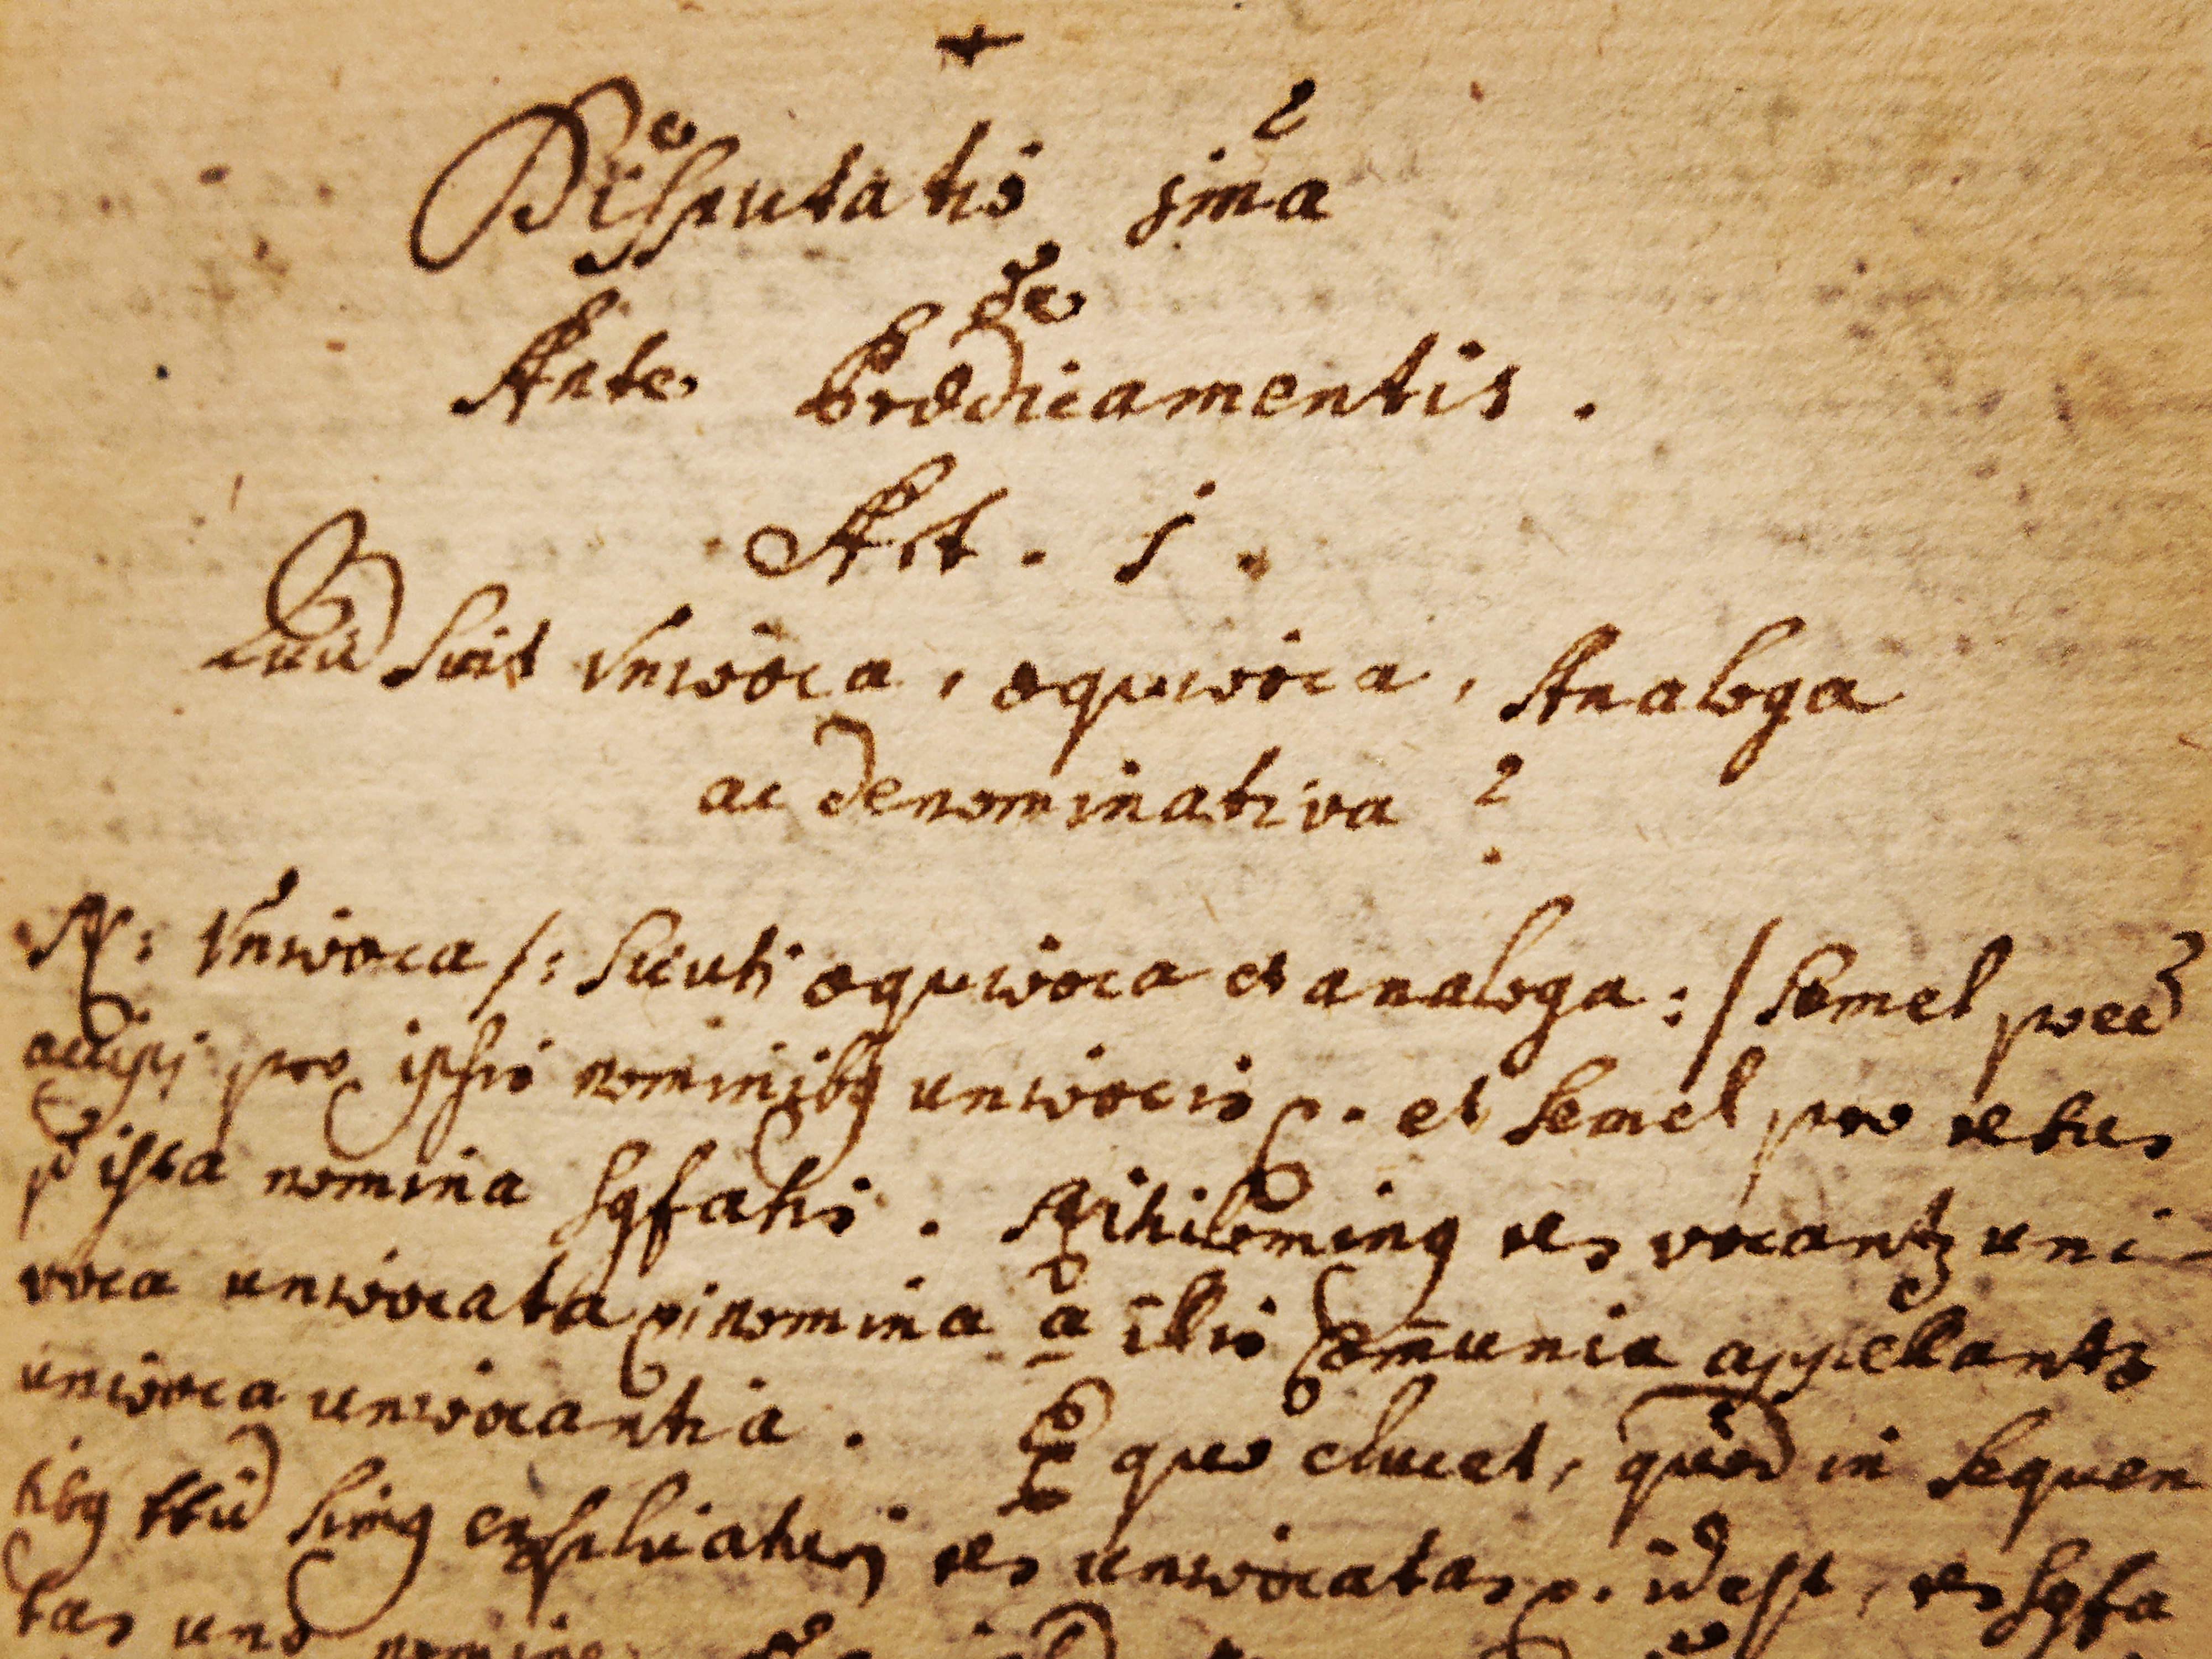 Disputatio 1ma
de
Ante Prædicamentis.
Art. 1.
Quid sint Univoca, æquivoca, Analoga
ac denominativa?
R: Univoca /: sicuti æquivoca et analoga :/ Semel
accipi pro ipsis nominibq univocis et semel pro rebus
p ista nomina sgfatis. Nihilominq res vocantz uni-
voca univocata nomina à illis comunia appellantz
univoca univocantia. Ex quo elucet, quòd in sequen
tibq simq explicaturj res univocatas id est, res sgfa
tas uno nomine